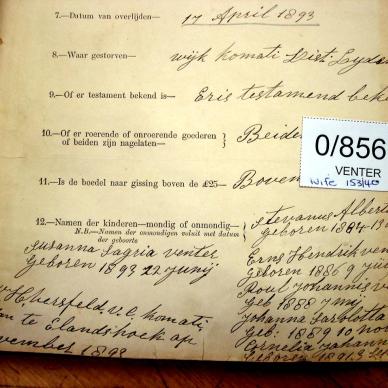 7.—Datum van overlijden— 17 April 1893
8.—Waar gestorven— wijk Komati Dist. Lyden
9.—Of er testament bekend is— Eris testamend bek
10.—Of er roerende of onroerende goederen
of beiden zijn nagelaten— Beide
0/856
VENTER
wife 153/40
11.—Is de boedel naar gissing boven de £25— Boven
12.—Namen der kinderen—mondig of onmondig—
N.B.—Namen der onmondigen voluit met datum
der geboorte
Stevanus Albert
Geboren 1884
Erns Hendrik ven
Geboren 1886 9
Poul Johannis v
Geb 1888
Johanna Sarlotta
Geb: 1889 10 no
Cornelia Johann
Geboren 1891 3
Susanna Sagria venter
Geboren 1893 22 Junij
Hersfeld v.c. Komati
te Elandshoek op
vember 1893